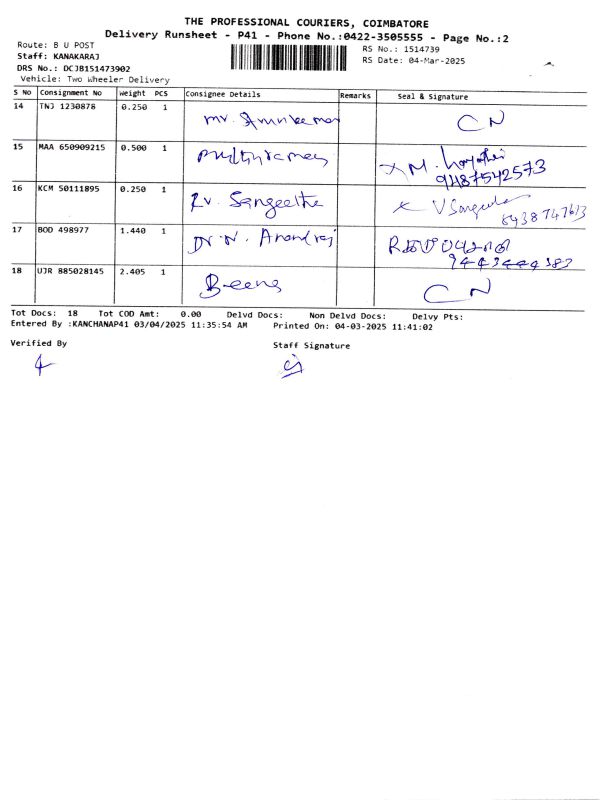 THE PROFESSIONAL COURIERS, COIMBATORE
Delivery Runsheet - P41 - Phone No.:0422-3505555 - Page No.:2
Route: B U POST
RS No.: 1514739
Staff: KANAKARAJ
RS Date: 04-Mar-2025
DRS No.: DCJB151473902
Vehicle: Two Wheeler Delivery
S No Consignment No Weight PCS Consignee Details Remarks Seal & Signature
14 TNJ 1230878 0.250 1 Mr. CN
15 MAA 650909215 0.500 1 M.
9487542573
16 KCM 50111895 0.250 1 Rv. Sangeetha V Sangeetha
17 BOD 498977 1.440 1 Dr. N. Anandraj
9443444383
18 UJR 885028145 2.405 1 Beena CN
Tot Docs: 18 Tot COD Amt: 0.00 Delvd Docs: Non Delvd Docs: Delvy Pts:
Entered By :KANCHANAP41 03/04/2025 11:35:54 AM Printed On: 04-03-2025 11:41:02
Verified By Staff Signature